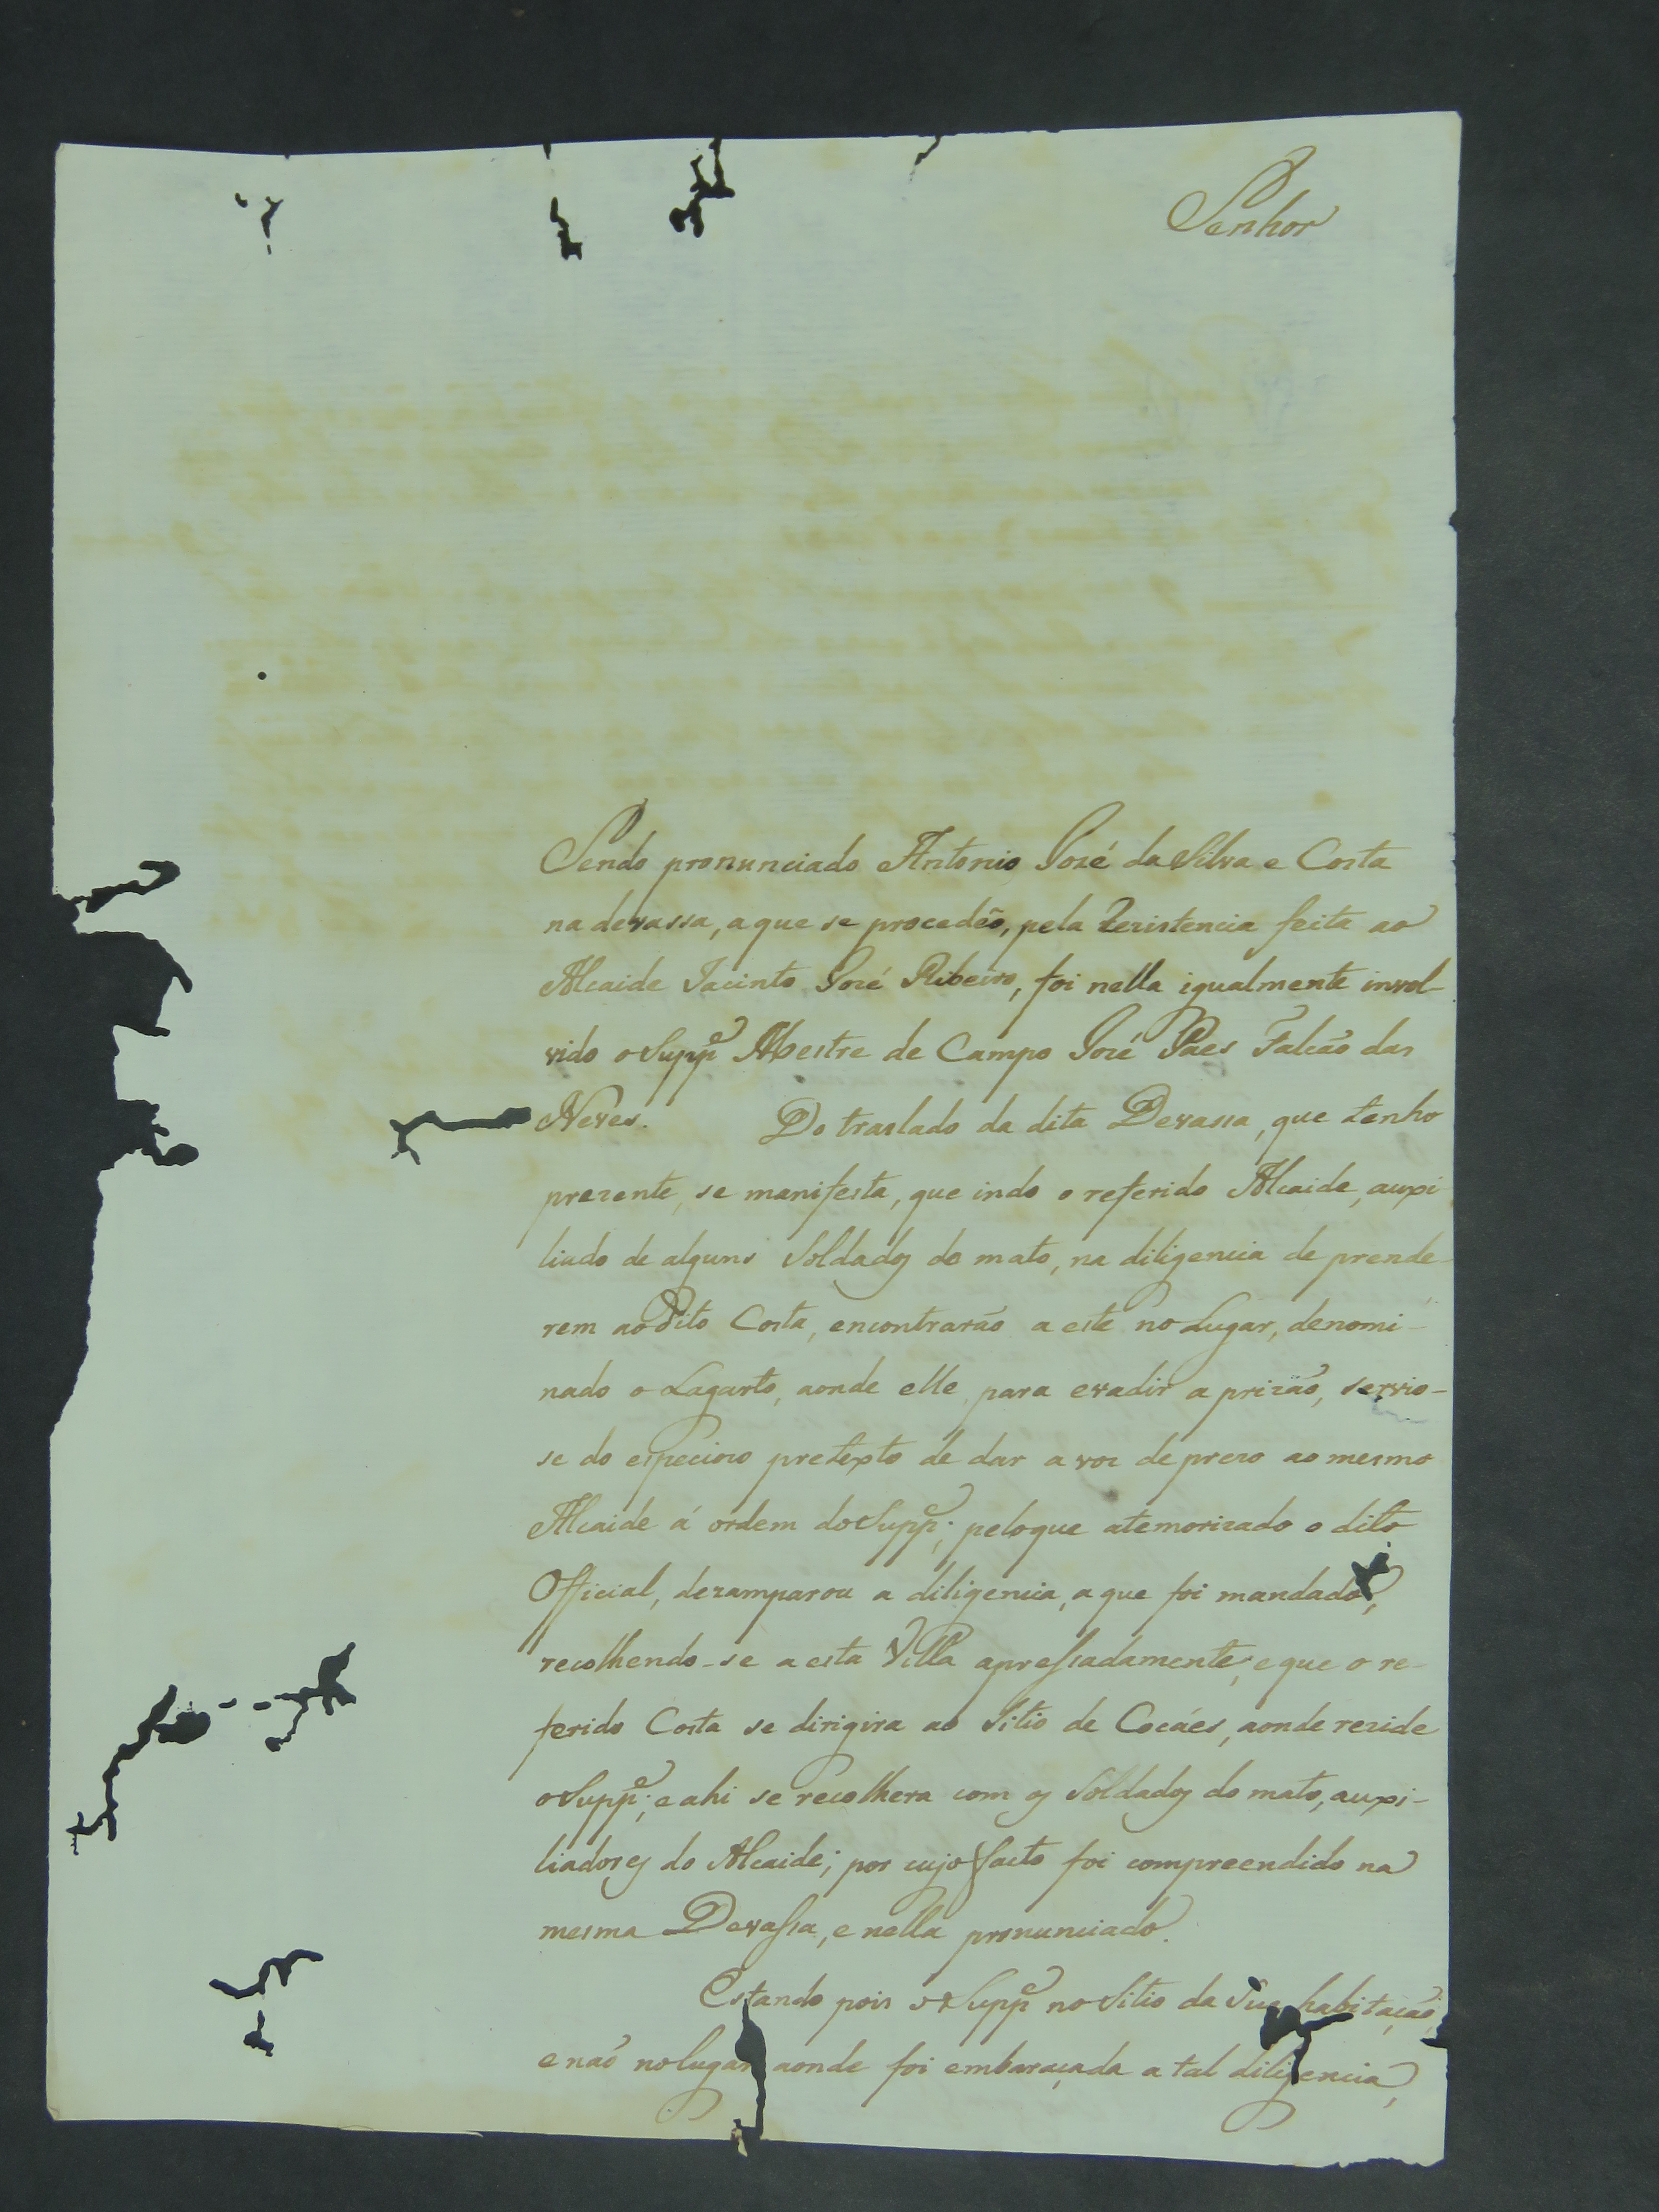 Senhor
Sendo pronunciado Antonio José da Silva e Costa
na devassa, a que se procedeo, pela Rezistencia feita ao
Alcaide Jacinto José Ribeiro, foi nella igualmente invol-
vido o Supp.e Mestre de Campo José Paes Falcão das
Neves. Do traslado da dita Devassa, que tenho
prezente, se manifesta, que indo o referido Alcaide, auxi
liado de alguns Soldados do mato, na diligencia de prende-
rem ao dito Costa, encontrarão a este no Lugar, denomi-
nado o Lagarto, aonde elle, para evadir a prizão, servio-
se do especiozo pretexto de dar a voz de prezo ao mesmo
Alcaide á ordem do Supp.e; peloque atemorizado o dito
Official, dezamparou a diligencia, a que foi mandado,
recolhendo-se a esta Villa apressadamente; e que o re-
ferido Costa se dirigira ao Sitio de Cocáes, aonde rezide
o Supp.e; e ahi se recolhera com os Soldados do mato, auxi-
liadores do Alcaide; por cujo facto foi compreendido na
mesma Devassa, e nella pronunciado.
Estando pois o Supp.e no Sitio da Sua habitação,
e não no lugar aonde foi embaraçada a tal diligencia,